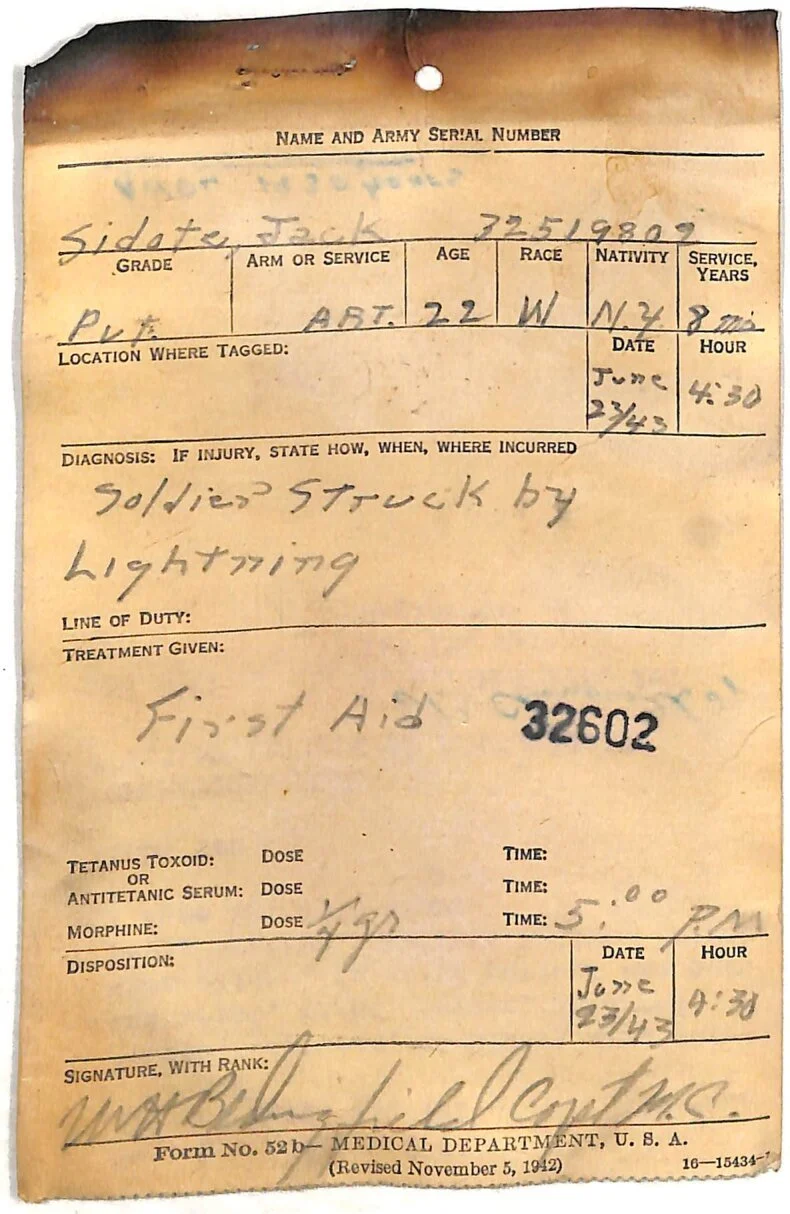 NAME AND ARMY SERIAL NUMBER
Sidote, Jack 32519809
GRADE ARM OR SERVICE AGE RACE NATIVITY SERVICE, YEARS
Pvt. ART. 22 W N.Y. 8 mo
LOCATION WHERE TAGGED: DATE HOUR
June 23/43 4:30
DIAGNOSIS: IF INJURY, STATE HOW, WHEN, WHERE INCURRED
Soldier Struck by
Lightning
LINE OF DUTY:
TREATMENT GIVEN:
First Aid 32602
TETANUS TOXOID: DOSE TIME:
OR
ANTITETANIC SERUM: DOSE TIME:
MORPHINE: DOSE 1/4 gr TIME: 5:00 P.M
DISPOSITION: DATE HOUR
June 23/43 4:30
SIGNATURE, WITH RANK:
Capt M.C.
Form No. 52b— MEDICAL DEPARTMENT, U. S. A.
(Revised November 5, 1942) 16—15434-1